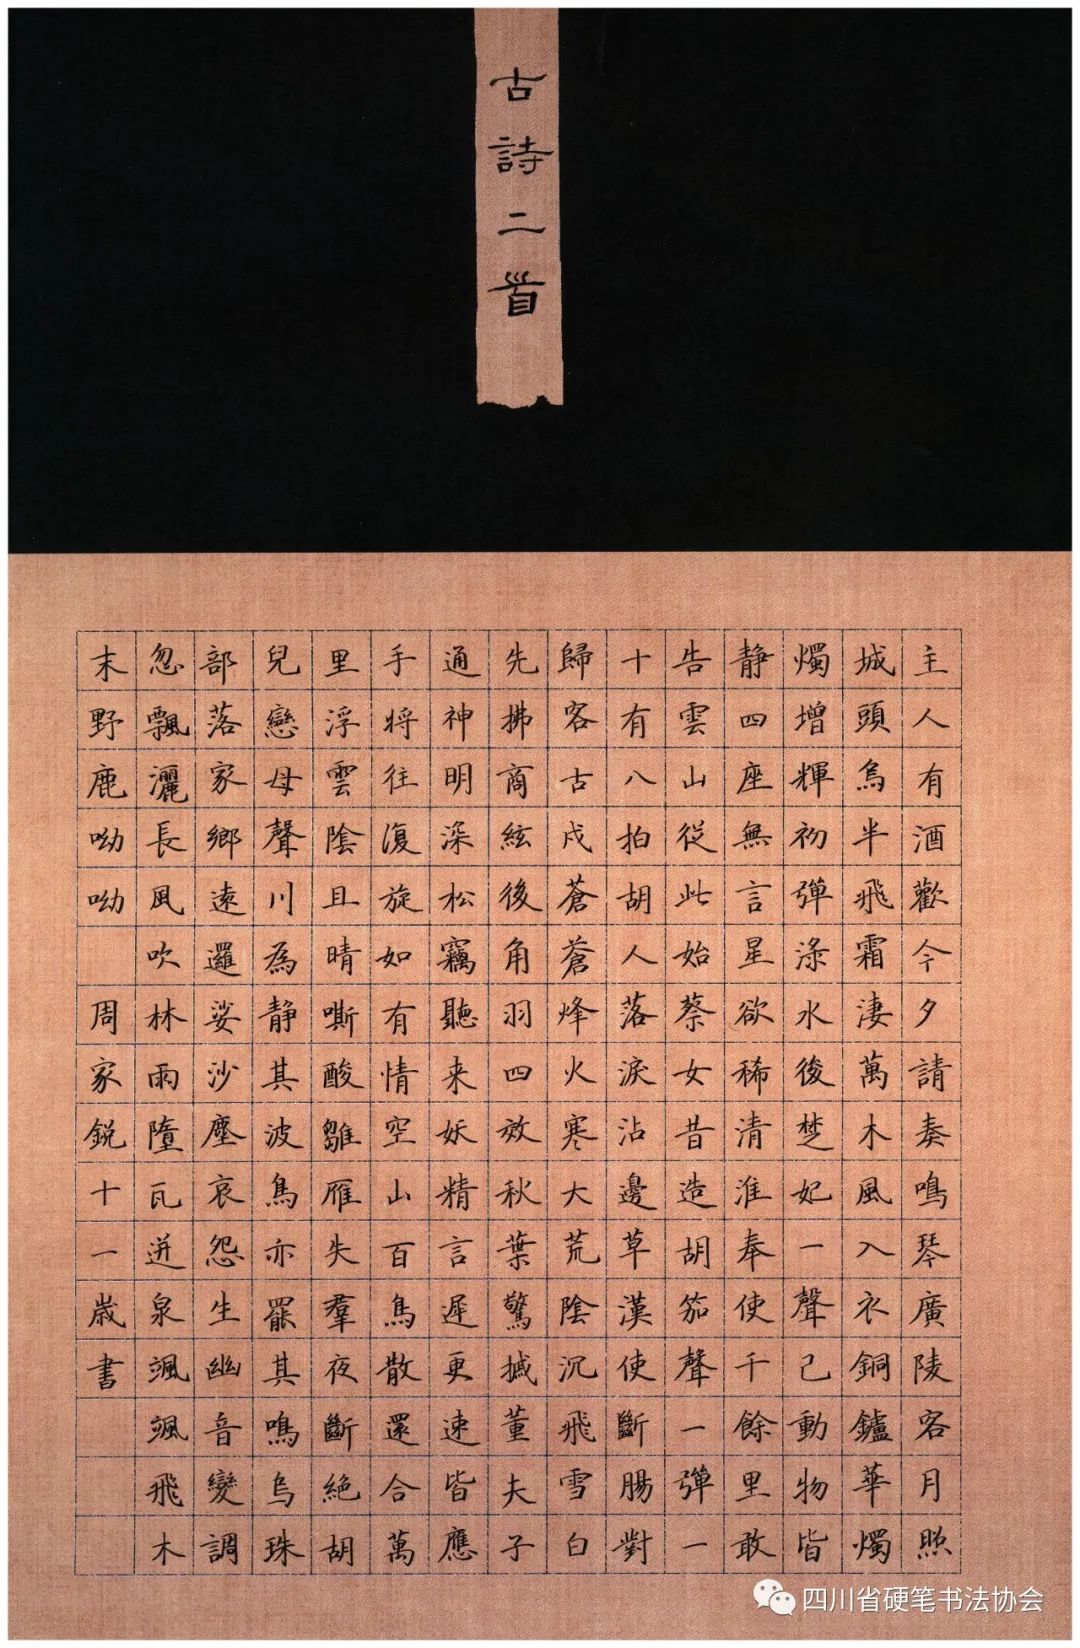 古詩二首
主人有酒歡今夕請奏鳴琴廣陵客月照
城頭烏半飛霜淒萬木風入衣銅鑪華燭
燭增輝初彈淥水後楚妃一聲已動物皆
靜四座無言星欲稀清淮奉使千餘里敢
告雲山從此始蔡女昔造胡笳聲一彈一
十有八拍胡人落淚沾邊草漢使斷腸對
歸客古戍蒼蒼烽火寒大荒陰沉飛雪白
先拂商絃後角羽四效秋葉驚摵董夫子
通神明深松竊聽来妖精言遲更速皆應
手将往復旋如有情空山百鳥散還合萬
里浮雲陰且晴嘶酸雛雁失羣夜斷絕胡
兒戀母聲川為靜其波鳥亦罷其鳴烏珠
部落家鄉遠邏娑沙塵哀怨生幽音變調
忽飄灑長風吹林雨墮瓦迸泉颯颯飛木
末野鹿呦呦 周家銳十一歲書
四川省硬笔书法协会